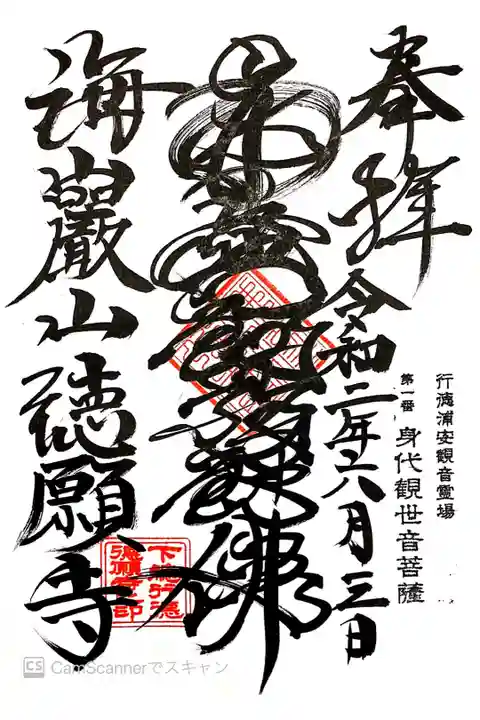 行徳浦安観音霊場
第一番 身代観世音菩薩
奉拝 令和二年六月三日
南無阿弥陀佛
海巖山 徳願寺
下総行徳
徳願寺印
CS CamScannerでスキャン